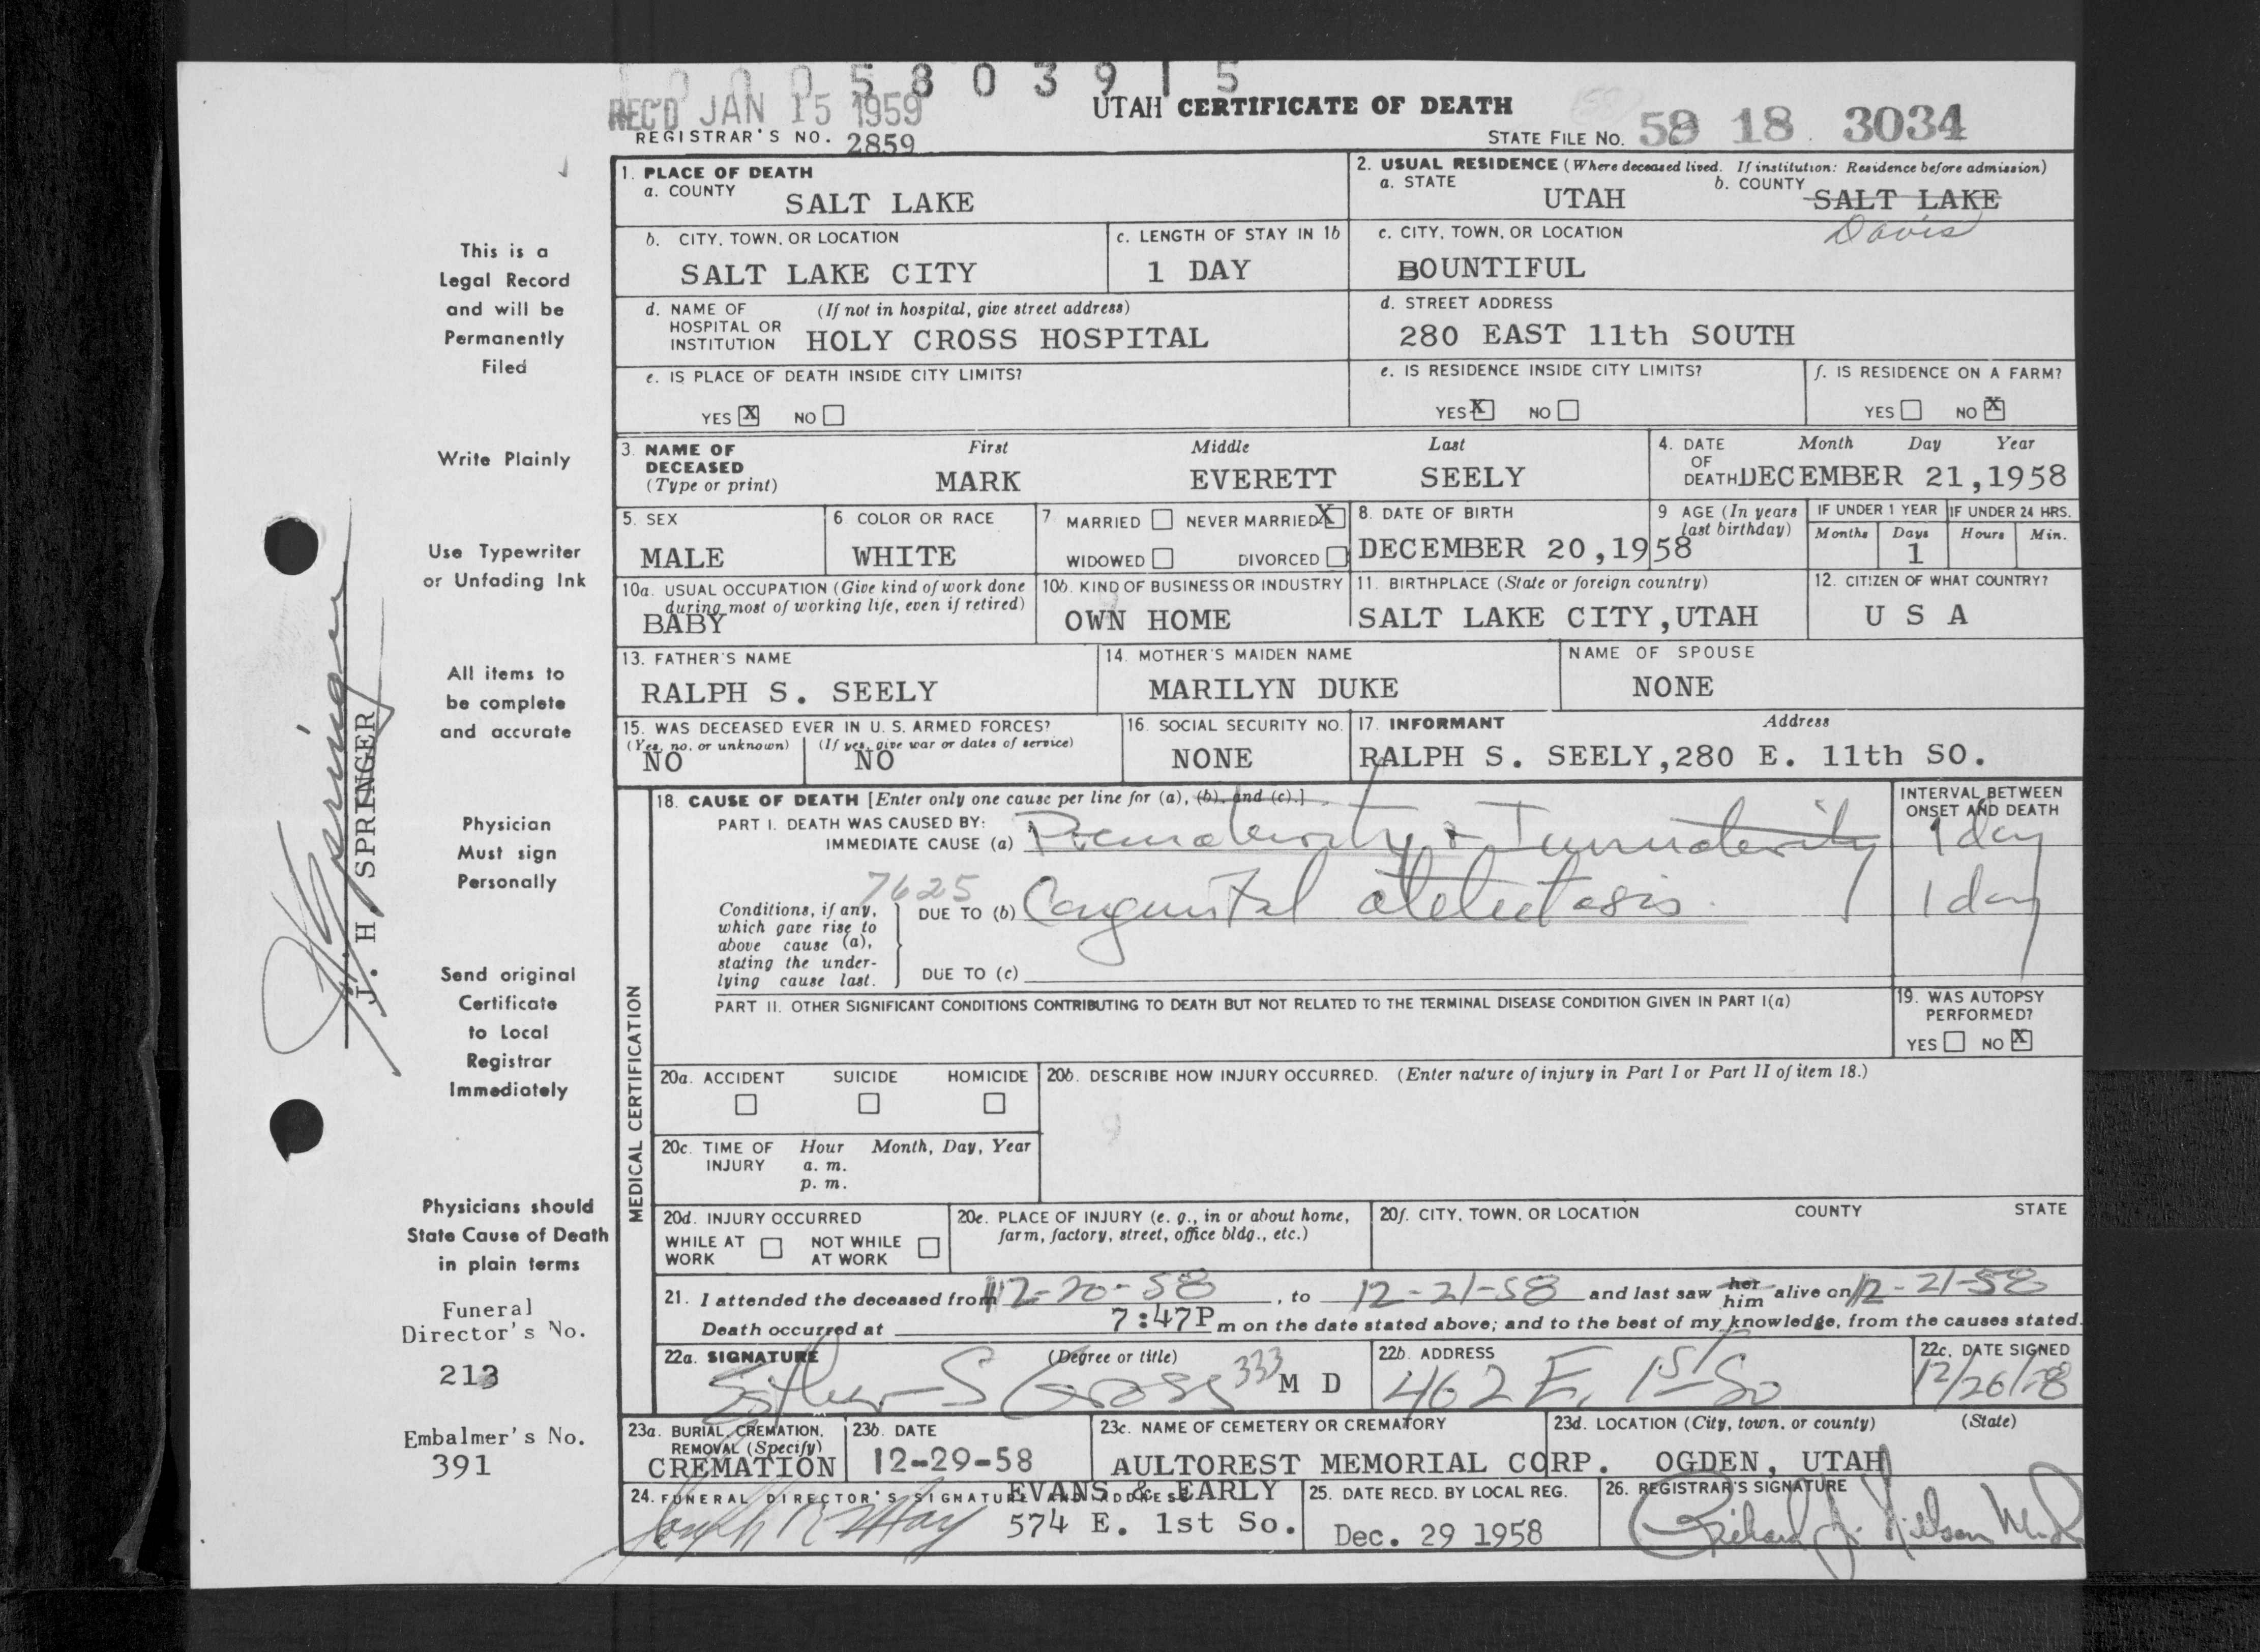 1 0 0 0 5 8 0 3 9 1 5
REC'D JAN 15 1959
UTAH CERTIFICATE OF DEATH
REGISTRAR'S NO. 2859
STATE FILE NO. 58 18 3034
1. PLACE OF DEATH
a. COUNTY
SALT LAKE
2. USUAL RESIDENCE (Where deceased lived. If institution: Residence before admission)
a. STATE
UTAH
b. COUNTY
SALT LAKE
Davis
b. CITY, TOWN, OR LOCATION
SALT LAKE CITY
c. LENGTH OF STAY IN 1b
1 DAY
c. CITY, TOWN, OR LOCATION
BOUNTIFUL
d. NAME OF HOSPITAL OR INSTITUTION
(If not in hospital, give street address)
HOLY CROSS HOSPITAL
d. STREET ADDRESS
280 EAST 11th SOUTH
e. IS PLACE OF DEATH INSIDE CITY LIMITS?
YES X NO
e. IS RESIDENCE INSIDE CITY LIMITS?
YES X NO
f. IS RESIDENCE ON A FARM?
YES NO X
3. NAME OF DECEASED (Type or print)
First Middle Last
MARK EVERETT SEELY
4. DATE OF DEATH
Month Day Year
DECEMBER 21,1958
5. SEX
MALE
6 COLOR OR RACE
WHITE
7 MARRIED NEVER MARRIED X
WIDOWED DIVORCED
8. DATE OF BIRTH
DECEMBER 20,1958
9 AGE (In years last birthday)
IF UNDER 1 YEAR
Months Days
1
IF UNDER 24 HRS.
Hours Min.
10a. USUAL OCCUPATION (Give kind of work done during most of working life, even if retired)
BABY
10b. KIND OF BUSINESS OR INDUSTRY
OWN HOME
11. BIRTHPLACE (State or foreign country)
SALT LAKE CITY,UTAH
12. CITIZEN OF WHAT COUNTRY?
U S A
13. FATHER'S NAME
RALPH S. SEELY
14. MOTHER'S MAIDEN NAME
MARILYN DUKE
NAME OF SPOUSE
NONE
15. WAS DECEASED EVER IN U. S. ARMED FORCES?
(Yes, no, or unknown) (If yes, give war or dates of service)
NO NO
16. SOCIAL SECURITY NO.
NONE
17. INFORMANT Address
RALPH S. SEELY,280 E. 11th SO.
MEDICAL CERTIFICATION
18. CAUSE OF DEATH [Enter only one cause per line for (a), (b), and (c).]
PART I. DEATH WAS CAUSED BY:
IMMEDIATE CAUSE (a) Prematurity & Immaturity
INTERVAL BETWEEN ONSET AND DEATH
1 day
7625
Conditions, if any, which gave rise to above cause (a), stating the underlying cause last.
DUE TO (b) Congenital atelectasis
1 day
DUE TO (c)
PART II. OTHER SIGNIFICANT CONDITIONS CONTRIBUTING TO DEATH BUT NOT RELATED TO THE TERMINAL DISEASE CONDITION GIVEN IN PART I(a)
19. WAS AUTOPSY PERFORMED?
YES NO X
20a. ACCIDENT SUICIDE HOMICIDE
20b. DESCRIBE HOW INJURY OCCURRED. (Enter nature of injury in Part I or Part II of item 18.)
20c. TIME OF INJURY
Hour Month, Day, Year
a. m.
p. m.
20d. INJURY OCCURRED
WHILE AT WORK NOT WHILE AT WORK
20e. PLACE OF INJURY (e. g., in or about home, farm, factory, street, office bldg., etc.)
20f. CITY, TOWN, OR LOCATION COUNTY STATE
21. I attended the deceased from 12-20-58, to 12-21-58 and last saw her him alive on 12-21-58
Death occurred at 7:47P m on the date stated above; and to the best of my knowledge, from the causes stated.
22a. SIGNATURE (Degree or title)
Esther S Gross 333 M D
22b. ADDRESS
462 E. 1st So
22c. DATE SIGNED
12/26/58
23a. BURIAL, CREMATION, REMOVAL (Specify)
CREMATION
23b. DATE
12-29-58
23c. NAME OF CEMETERY OR CREMATORY
AULTOREST MEMORIAL CORP.
23d. LOCATION (City, town, or county) (State)
OGDEN, UTAH
24. FUNERAL DIRECTOR'S SIGNATURE AND ADDRESS
EVANS & EARLY
574 E. 1st So.
25. DATE RECD. BY LOCAL REG.
Dec. 29 1958
26. REGISTRAR'S SIGNATURE
Richard J. Nielson M.D.
This is a
Legal Record
and will be
Permanently
Filed
Write Plainly
Use Typewriter
or Unfading Ink
All items to
be complete
and accurate
Physician
Must sign
Personally
Send original
Certificate
to Local
Registrar
Immediately
Physicians should
State Cause of Death
in plain terms
Funeral
Director's No.
213
Embalmer's No.
391
JH Springer
J. H. SPRINGER